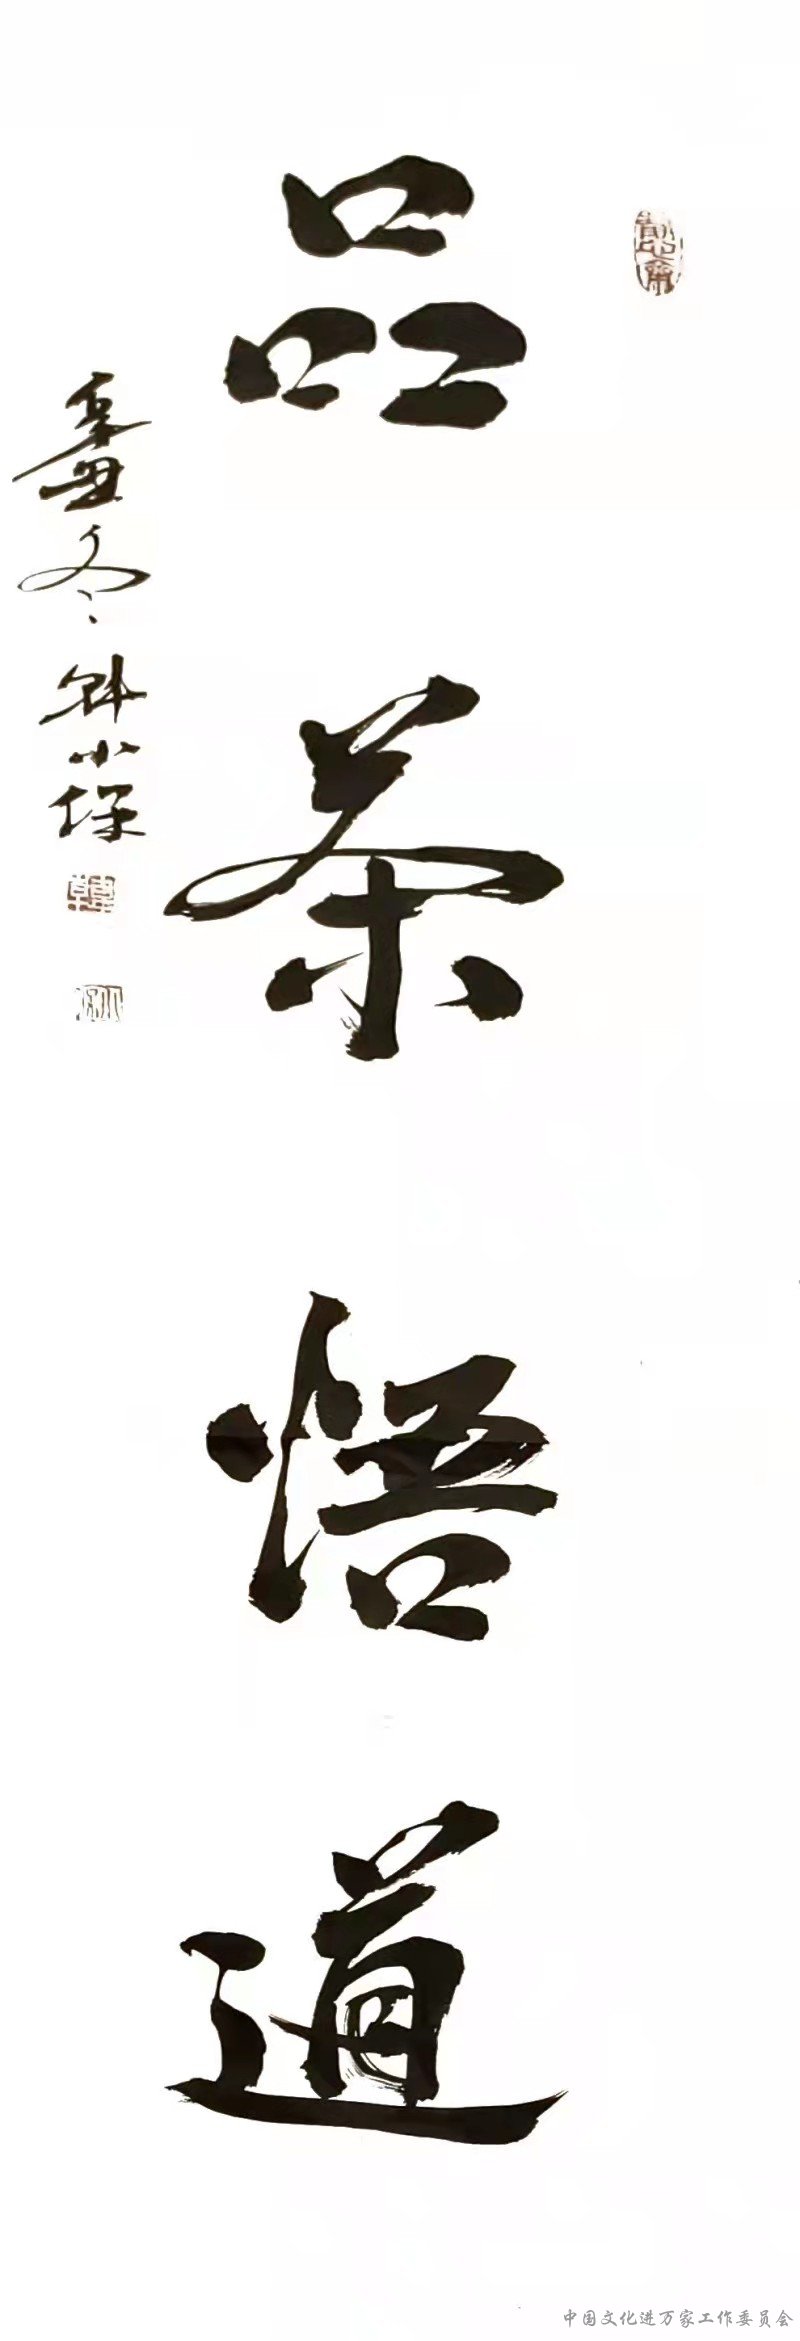 品茶悟道
辛丑冬 韩小保
中国文化进万家工作委员会